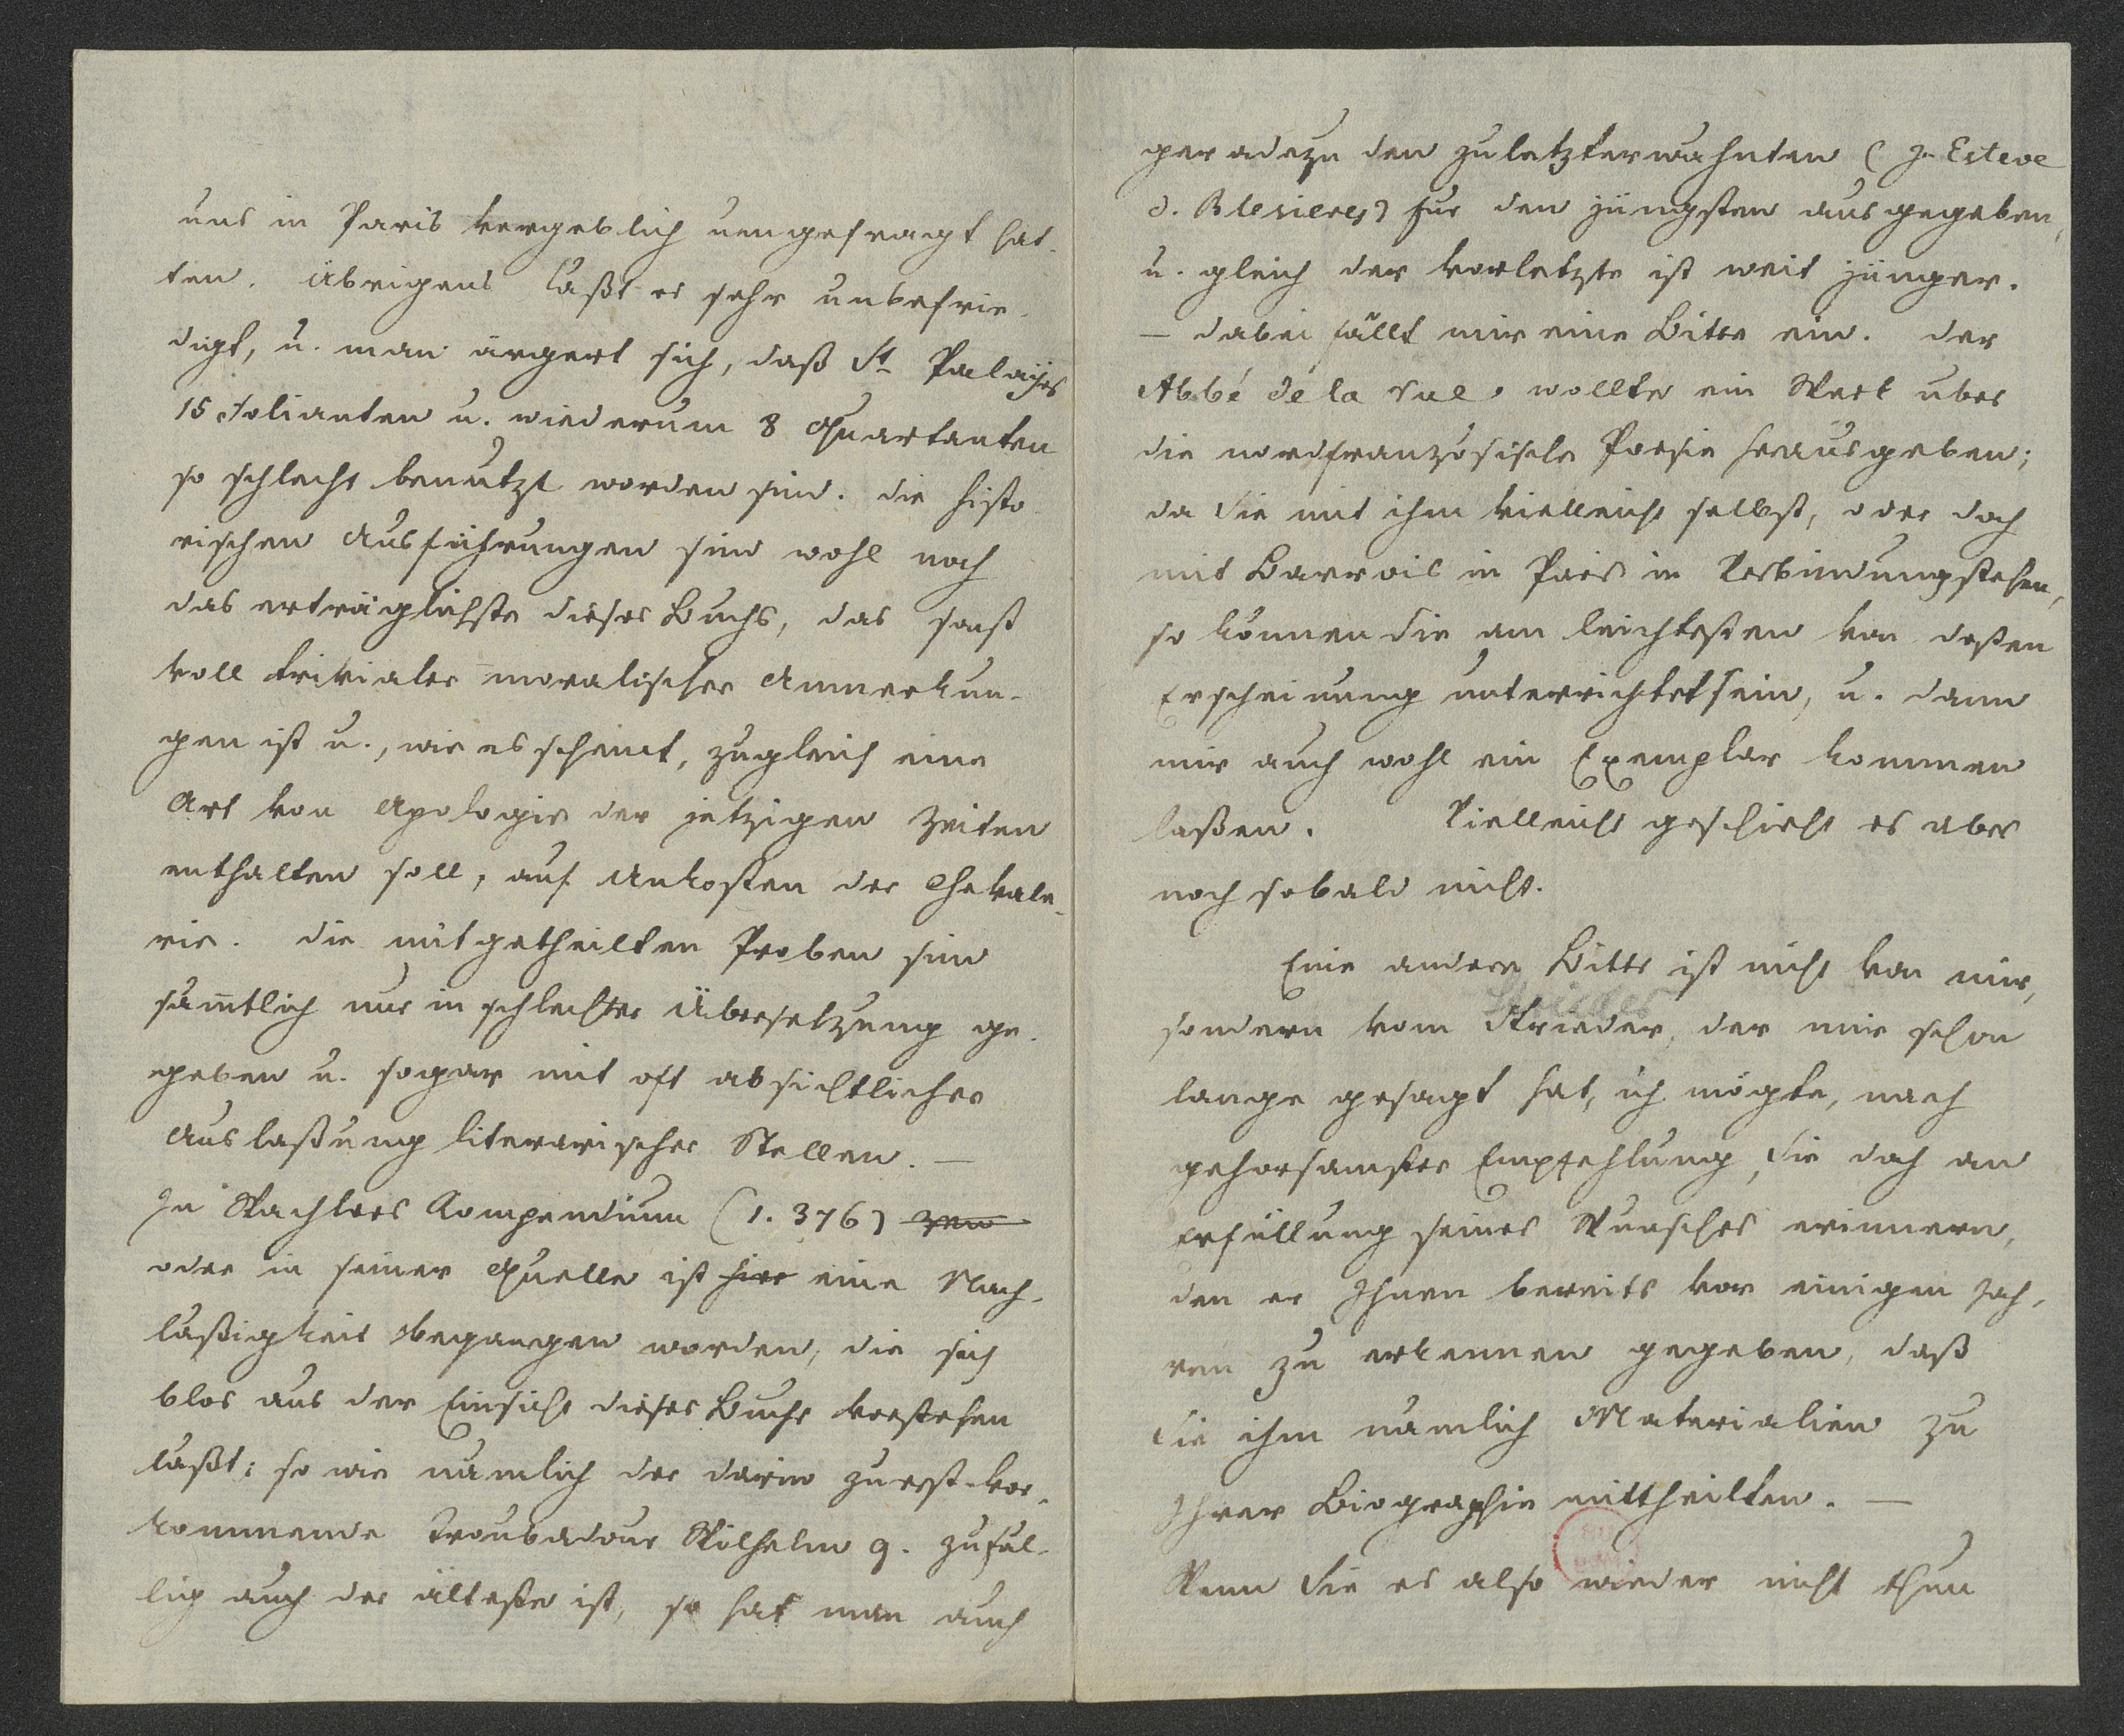 uns in Paris vergeblich umgefragt hat-
ten. Übrigens läßt es sehr unbefrie-
digt, u. man ärgert sich, daß St Palayes
15 Folianten u. wiederum 8 Quartanten
so schlecht benutzt worden sind. die histo-
rischen Ausführungen sind wohl noch
das erträglichste dieses Buchs, das sonst
voll trivialer moralischer Anmerkun-
gen ist u., wie es scheint, zugleich eine
Art von Apologie der jetzigen Zeiten
enthalten soll, auf Unkosten der Chevale-
rie. die mitgetheilten Proben sind
sämtlich nur in schlechter Übersetzung ge-
geben u. sogar mit oft absichtlicher
Auslaßung literarischer Stellen. —
In Wachlers Compendium (1. 376)
oder in seiner Quelle ist hier eine Nach-
läßigkeit begangen worden, die sich
blos aus der Einsicht dieses Buchs verstehen
läßt; so wie nämlich der darin zuerst vor-
kommende Troubadour Wilhelm 9. zufäl-
lig auch der älteste ist, so hat man auch
geradezu den zuletzterwähnten (J. Esteve
d. Blesieres) für den jüngsten ausgegeben,
u. gleich der vorletzte ist weit jünger.
— dabei fällt mir eine Bitte ein. der
Abbé de la rue, wollte ein Werk über
die nordfranzösische Poesie herausgeben;
da Sie mit ihm vielleicht selbst, oder doch
mit Barrois in Paris in Verbindung stehen,
so können Sie am leichtesten von deßen
Erscheinung unterrichtet sein, u. dann
mir auch wohl ein Exemplar kommen
laßen. Vielleicht geschieht es aber
noch sobald nicht.
Eine andere Bitte ist nicht von mir,
Strieder
sondern vom Strieder, der mir schon
lange gesagt hat, ich mögte, nach
gehorsamster Empfehlung, Sie doch an
Erfüllung seines Wunsches erinnern,
den er Ihnen bereits vor einigen Jah-
ren zu erkennen gegeben, daß
Sie ihm nämlich Materialien zu
Ihrer Biographie mittheilten. —
Wenn Sie es also wieder nicht thun